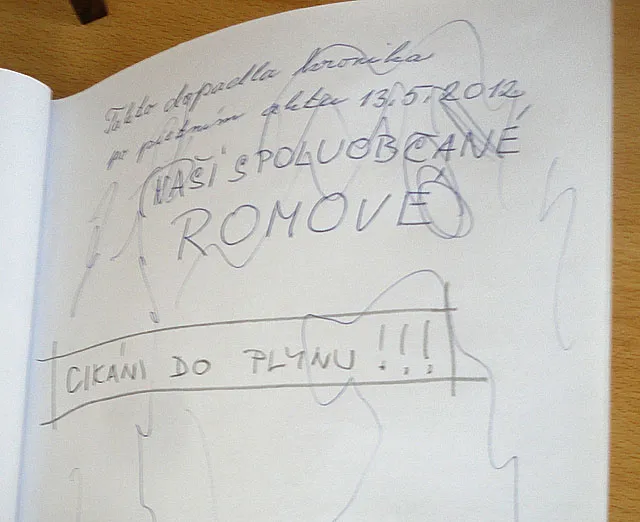 Takto dopadla kronika
po pietním aktu 13.5.2012
NAŠI SPOLUOBČANÉ
ROMOVÉ
CIKÁNI DO PLYNU !!!